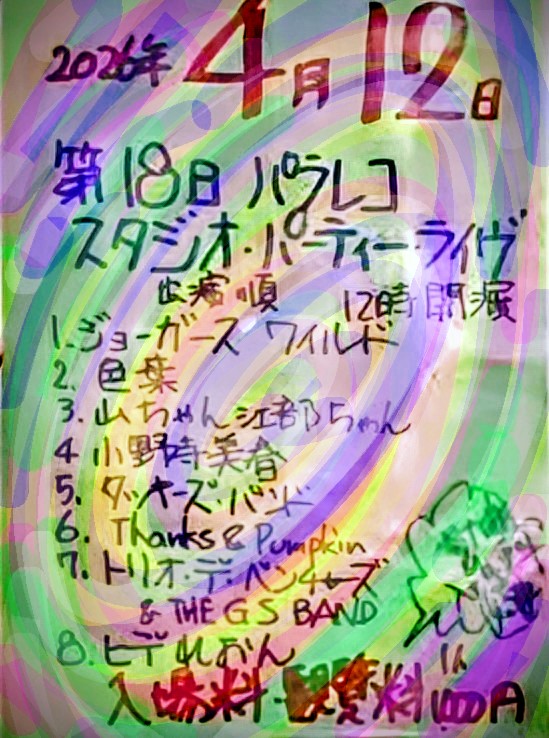 2026年 4月12日
第18日 パラレコ
スタジオ・パーティー・ライヴ
出演順 12時開演
1. ジョーガース ワイルド
2. 色葉
3. 山ちゃん江部ちゃん
4 小野寺美春
5. タッキーズ・バンド
6. Thanks & Pumpkin
7. トリオ・デ・ベンチーズ
& THE GS BAND
8. ヒデれおん
入場料